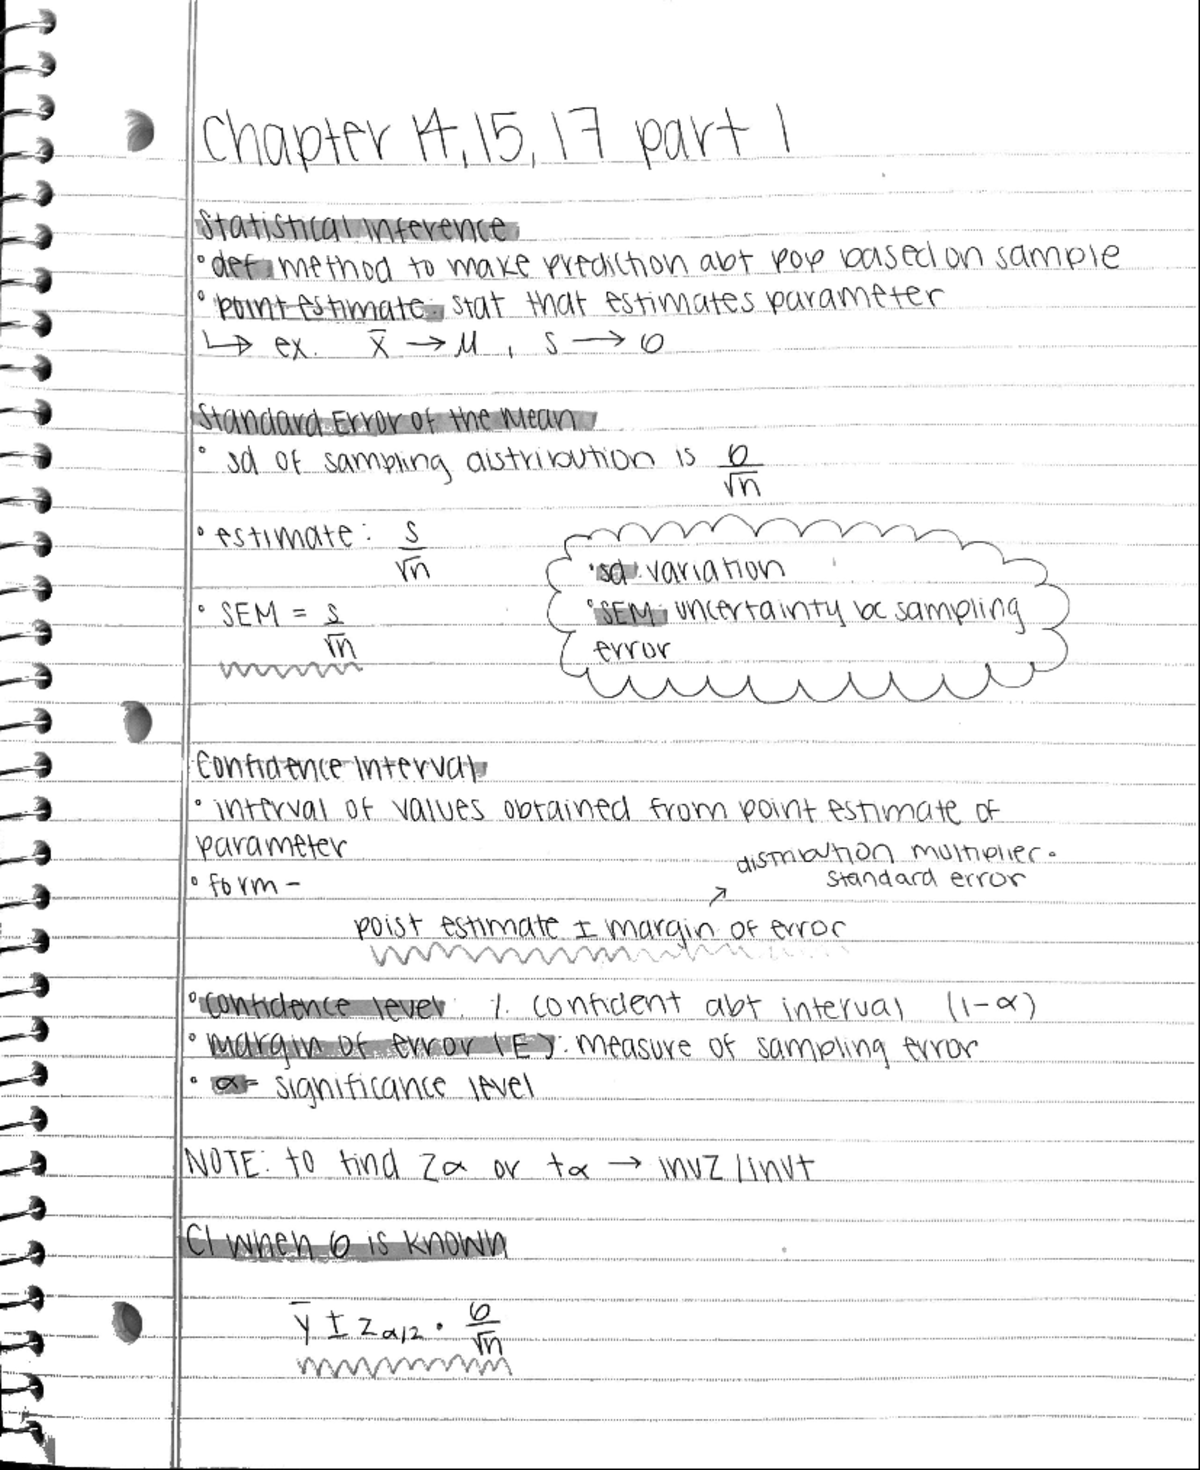 Chapter 14, 15, 17 part 1
Statistical Inference
• def: method to make prediction abt pop based on sample
• point estimate: stat that estimates parameter
↳ ex. x̄ → μ, s → σ
Standard Error of the Mean
• sd of sampling distribution is σ/√n
• estimate: s/√n
• SEM = s/√n
• sd: variation
• SEM: uncertainty bc sampling
error
Confidence Interval
• interval of values obtained from point estimate of
parameter
• form -
distribution multiplier •
standard error
poist estimate ± margin of error
• confidence level: % confident abt interval (1-α)
• margin of error (E): measure of sampling error
• α = significance level
NOTE: to find Zα or tα → invZ / invt
CI when σ is known
ȳ ± z α/2 • σ/√n